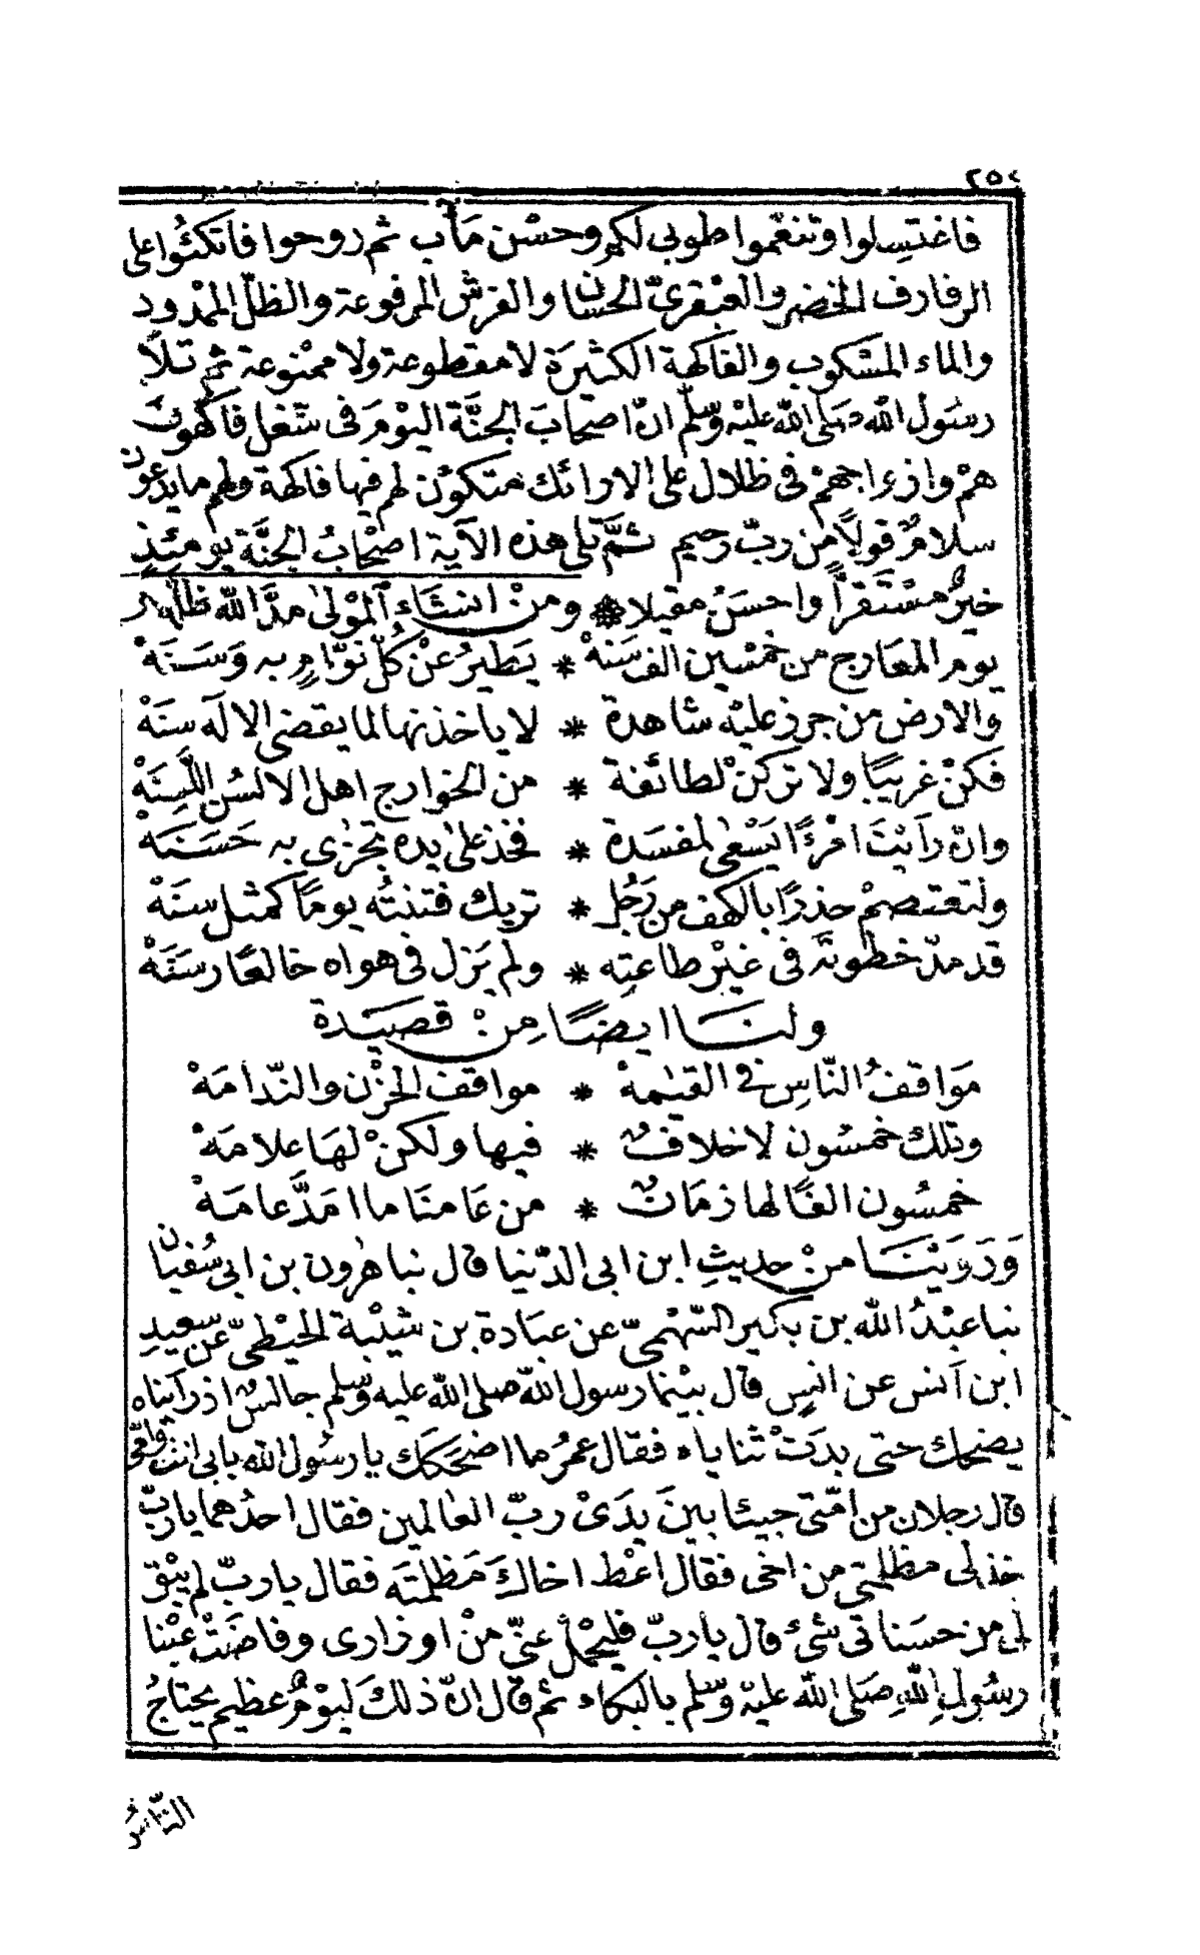 ٢٥٠
فاغتسلوا وتنعّموا طوبى لكم وحسْن مَآب ثم روحوا فاتكئُوا على
الرفارف الخضر والعبْقرىّ الحسان والفرش المرفوعة والظلّ الممْدود
والماء المسْكوب والفاكهة الكثيرَة لا مقطوعة ولا ممْنوعة ثم تلاَ
رسُول الله صَلى الله عليْه وسّلم انّ اصحابَ الجنَّة اليوْمَ فى شغل فاكهون
همْ وازواجهمْ فى ظلال على الارائك متكؤن لهم فيها فاكهة ولهم ما يدعون
سلامٌ قولاً من ربّ رحيم ثمَّ تلى هذه الآية اصْحابُ الجنَّة يومئذٍ
خيرٌ مسْتقرّاً واحسَنُ مقيلا ومنْ انشاء المْولىٰ مدَّ الله ظلّه
يوم المعَارج من خمْسين الف سَنهْ * يَطيرُ عنْ كُلّ نوّامٍ به وَسَنَهْ
والارض من جرز عليْه شاهدة * لا ياخذنها لما يقضى الاله سنَهْ
فكنْ غريبًا ولا تركنْ لطائفة * من الخوارج اهل الالسُن اللَّسِنَهْ
وانْ رَاَيْتَ امْرءًا يَسْعىٰ لمفسَدة * فخذ علىٰ يده تجزىٰ به حَسَنَهْ
ولتعتصمْ حذرًا بالكهف من رَجُل * تريك فتنتُه يومًا كمثل سنَهْ
قد مدّ خطوتَه فى غيْر طاعتِه * ولم يَزل فى هواه خالعًا رسَنَهْ
ولنَا ايضًا مِنْ قصيدة
مَواقفُ النّاسِ فى القيٰمهْ * مواقف الحزْن والنّدامَهْ
وتلك خمسُون لا خلافٌ * فيها ولكنْ لهَا علامَهْ
خمسُون الفًا لها زمَانٌ * من عَامنَا ما امَدَّ عامَهْ
وَرَوَيْنَا منْ حديثِ ابن ابى الدّنيا قال نبا هٰرون بن ابى سُفيان
نبا عبْدُ الله بن بكير السّهْمىّ عن عبَادة بن شيْبة الحبَطىّ عن سعيدِ
ابن اَنس عن انسٍ قال بيْنما رسول الله صلى الله عليه وسّلم جالسٌ اذ راَيناه
يضحك حتى بدَتْ ثناياه فقال عمرُ ما اضحَكك يا رسُول الله بابى انت وامّى
قال رجلان من امّتى جيئا بينَ يدَىْ ربّ العٰالمين فقال احدُهما يا ربّ
خذ لى مظلمتى من اخى فقال اعْط اخاكَ مَظلمتَه فقال يا ربّ لم يبْق
لى من حسَناتى شئ قال يا ربّ فليحْملْ عنّى منْ اوزارى وفاضَتْ عيْنا
رسُولِ اللهِ صَلى الله عليْه وسّلم بالبكاء ثم قال انّ ذلكَ ليوْمٌ عظيم يحتاجُ
النّاسُ